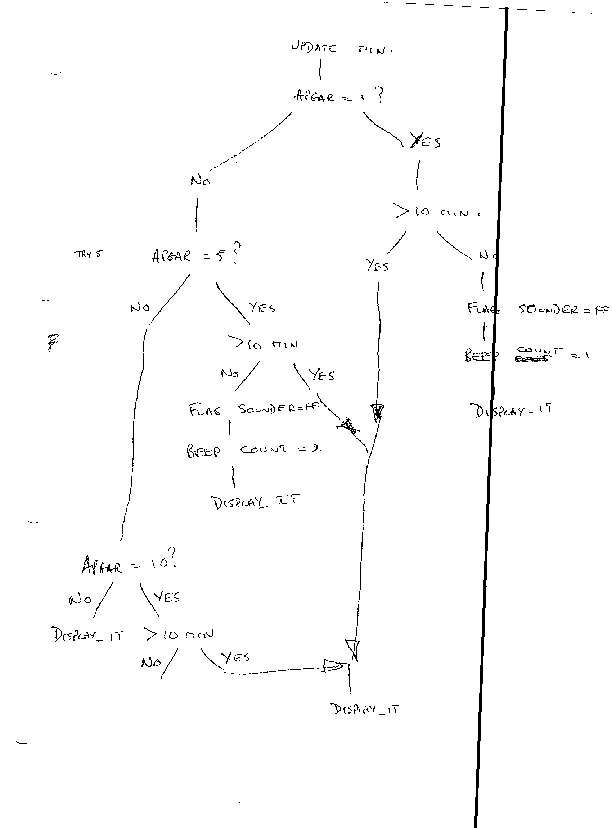 UPDATE MIN.
APGAR = 1 ?
YES
NO
> 10 MIN.
TRY 5
APGAR = 5 ?
YES
NO
NO
YES
FLAG SOUNDER = FF
> 10 MIN
BEEP COUNT = 1
NO
YES
FLAG SOUNDER = FF
DISPLAY_IT
BEEP COUNT = 2.
DISPLAY_IT
APGAR = 10 ?
NO
YES
DISPLAY_IT
> 10 MIN
NO
YES
DISPLAY_IT